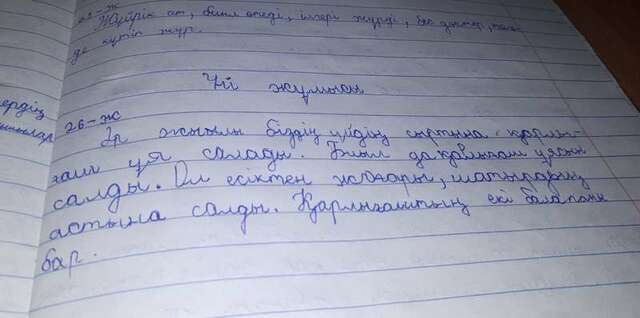 25-ж
Жүйрік ат, биыл өтеді, ілгері жүрді, без
да күтіп жүр.
Үй жұмысы
26-ж
Әр жылы біздің үйдің сыртына қарлы-
ғаш ұя салады. Биыл да қарлығаш ұясын
салды. Ол есіктен жоғары, шатырдың
астына салды. Қарлығаштың екі балапаны
бар.